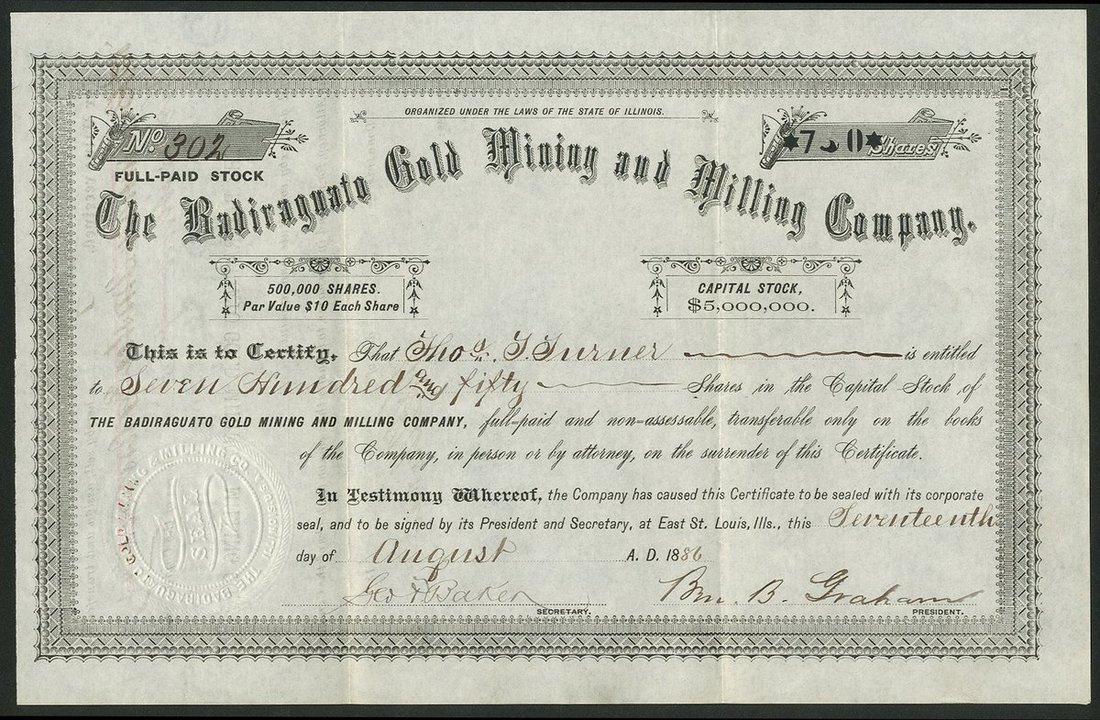 ORGANIZED UNDER THE LAWS OF THE STATE OF ILLINOIS.
No. 302
Shares
FULL-PAID STOCK
The Badiraguato Gold Mining and Milling Company.
500,000 SHARES.
Par Value $10 Each Share
CAPITAL STOCK,
$5,000,000.
This is to Certify, That Thos. T. Turner is entitled
to Seven Hundred and fifty Shares in the Capital Stock of
THE BADIRAGUATO GOLD MINING AND MILLING COMPANY, full-paid and non-assessable, transferable only on the books
of the Company, in person or by attorney, on the surrender of this Certificate.
In Testimony Whereof, the Company has caused this Certificate to be sealed with its corporate
seal, and to be signed by its President and Secretary, at East St. Louis, Ills., this Seventeenth
day of August A. D. 1886
Geo Baker
SECRETARY.
B. Graham
PRESIDENT.
SEAL